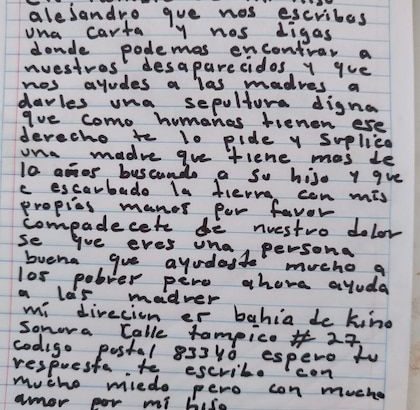 alejandro que nos escribas
una carta y nos digas
donde podemos encontrar a
nuestros desaparecidos y que
nos ayudes a las madres a
darles una sepultura digna
que como humanas tienen ese
derecho te lo pide y suplico
una madre que tiene mas de
10 años buscando a su hijo y que
e escarbado la tierra con mis
propias manos por favor
compadecete de nuestro dolor
se que eres una persona
buena que ayudaste mucho a
los pobrer pero ahora ayuda
a las madrer
mi direcion es bahia de kino
Sonora Calle tampico # 27
codigo postal 83340 espero tu
respuesta te escribo con
mucho miedo pero con mucho
amor por mi hijo